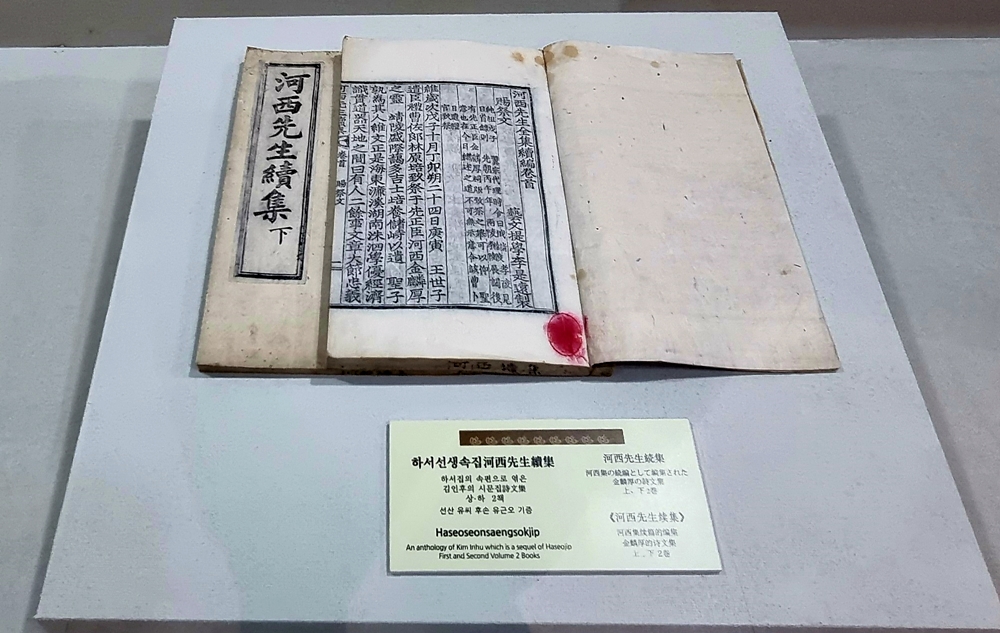 河西先生續集 下
河西先生全集續編卷首
賜祭文
藝文提學李是遠製
維歲次戊子十月丁卯朔二十四日庚寅 王世子
遣臣禮曹佐郎林原培致祭于先正臣河西金麟厚
之靈 靖陵盛際藹多吉士培養儲峙以遺 聖子
孰爲其人維文正是海東濂溪湖南洙泗學優經濟
識貫道器天地之間曰有人二餘事文章大節忠義
卷首 賜祭文
하서선생속집河西先生續集
하서집의 속편으로 엮은
김인후의 시문집詩文集
상·하 2책
선산 유씨 후손 유근오 기증
Haseoseonsaengsokjip
An anthology of Kim Inhu which is a sequel of Haseojip
First and Second Volume 2 Books
河西先生続集
河西集の続編として編集された
金麟厚の詩文集
上、下 2巻
《河西先生续集》
河西集续篇的编集
金麟厚的诗文集
上、下 2卷